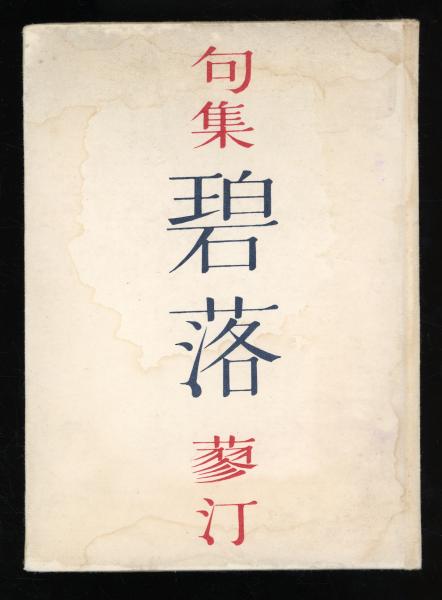 句集
碧落
蓼汀